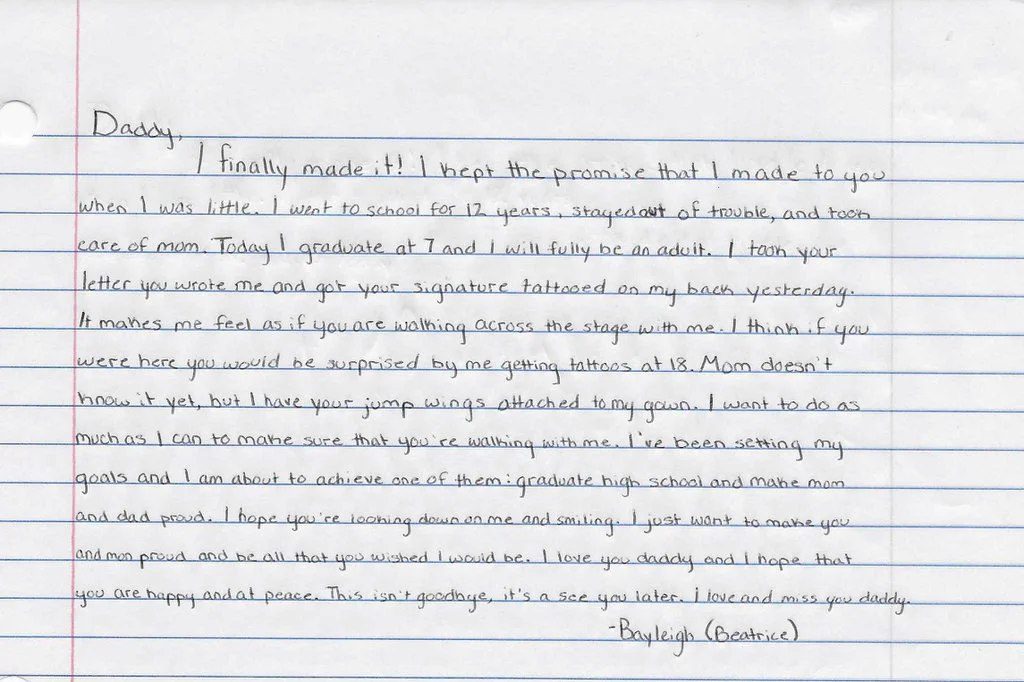 Daddy,
I finally made it! I kept the promise that I made to you
when I was little. I went to school for 12 years, stayed out of trouble, and took
care of mom. Today I graduate at 7 and I will fully be an adult. I took your
letter you wrote me and got your signature tattooed on my back yesterday.
It makes me feel as if you are walking across the stage with me. I think if you
were here you would be surprised by me getting tattoos at 18. Mom doesn't
know it yet, but I have your jump wings attached to my gown. I want to do as
much as I can to make sure that you're walking with me. I've been setting my
goals and I am about to achieve one of them: graduate high school and make mom
and dad proud. I hope you're looking down on me and smiling. I just want to make you
and mon proud and be all that you wished I would be. I love you daddy and I hope that
you are happy and at peace. This isn't goodbye, it's a see you later. i love and miss you daddy.
-Bayleigh (Beatrice)